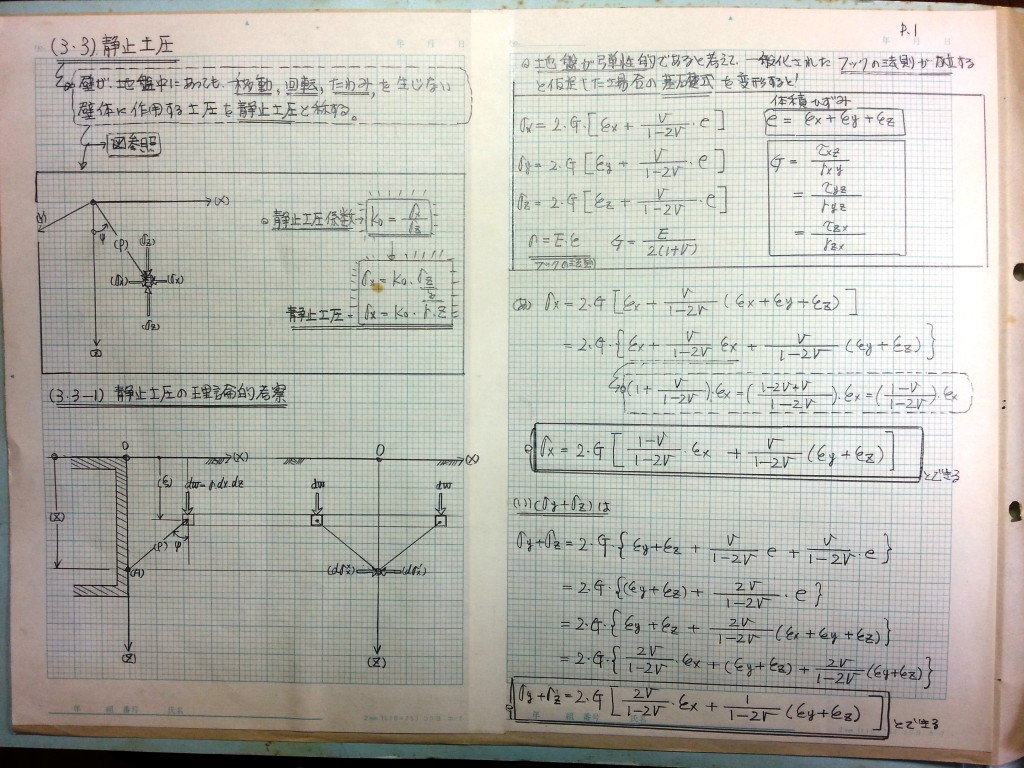 (3・3) 静止土圧
◎ 壁が地盤中にあっても、移動, 回転, たわみ, を生じない
壁体に作用する土圧を静止土圧と称する。
→ 図参照
(X)
(Y)
ψ
(ρ)
(σz)
(σx) (σx)
(σz)
(Z)
◎ 静止土圧係数→ K0 = σx/σz
σx = K0・σz
静止土圧 = σx = K0・γ・Z
(3・3-1) 静止土圧の理論的考察
O (X) O (X)
(Z) (ξ) dw=γ.dx.dz dw dw
(ρ) ψ
(A) (dσx) (dσx)
(Z) (Z)
年 組 番号 氏名
P.1
年 月 日
◎ 地盤が弾性的であると考えて 一般化された フックの法則が成立する
と仮定した場合の基礎式を変形すると!
体積ひずみ
e = εx + εy + εz
σx = 2・G・[εx + ν/1-2ν ・e]
σy = 2・G[εy + ν/1-2ν ・e]
σz = 2・G[εz + ν/1-2ν ・e]
σ = E・ε G = E/2(1+ν)
フックの法則
G = τxz/γxy
= τyz/γyz
= τzx/γzx
(あ) σx = 2・G[εx + ν/1-2ν (εx+εy+εz)]
= 2・G・{εx + ν/1-2ν εx + ν/1-2ν (εy+εz)}
(1 + ν/1-2ν)・εx = (1-2ν+ν/1-2ν)・εx = (1-ν/1-2ν)・εx
◎ σx = 2・G[1-ν/1-2ν ・εx + ν/1-2ν (εy+εz)] とできる
(い) (σy+σz)は
σy+σz = 2・G{εy+εz + ν/1-2ν e + ν/1-2ν ・e}
= 2・G・{(εy+εz) + 2ν/1-2ν ・e}
= 2・G・{εy+εz + 2ν/1-2ν (εx+εy+εz)}
= 2・G・{2ν/1-2ν ・εx + (εy+εz) + 2ν/1-2ν (εy+εz)}
σy+σz = 2・G[2ν/1-2ν ・εx + 1/1-2ν (εy+εz)] とできる